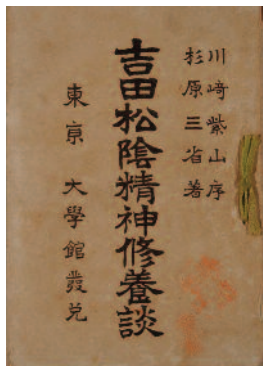 川﨑紫山序
杉原三省著
吉田松陰精神修養談
東京 大學館發兌